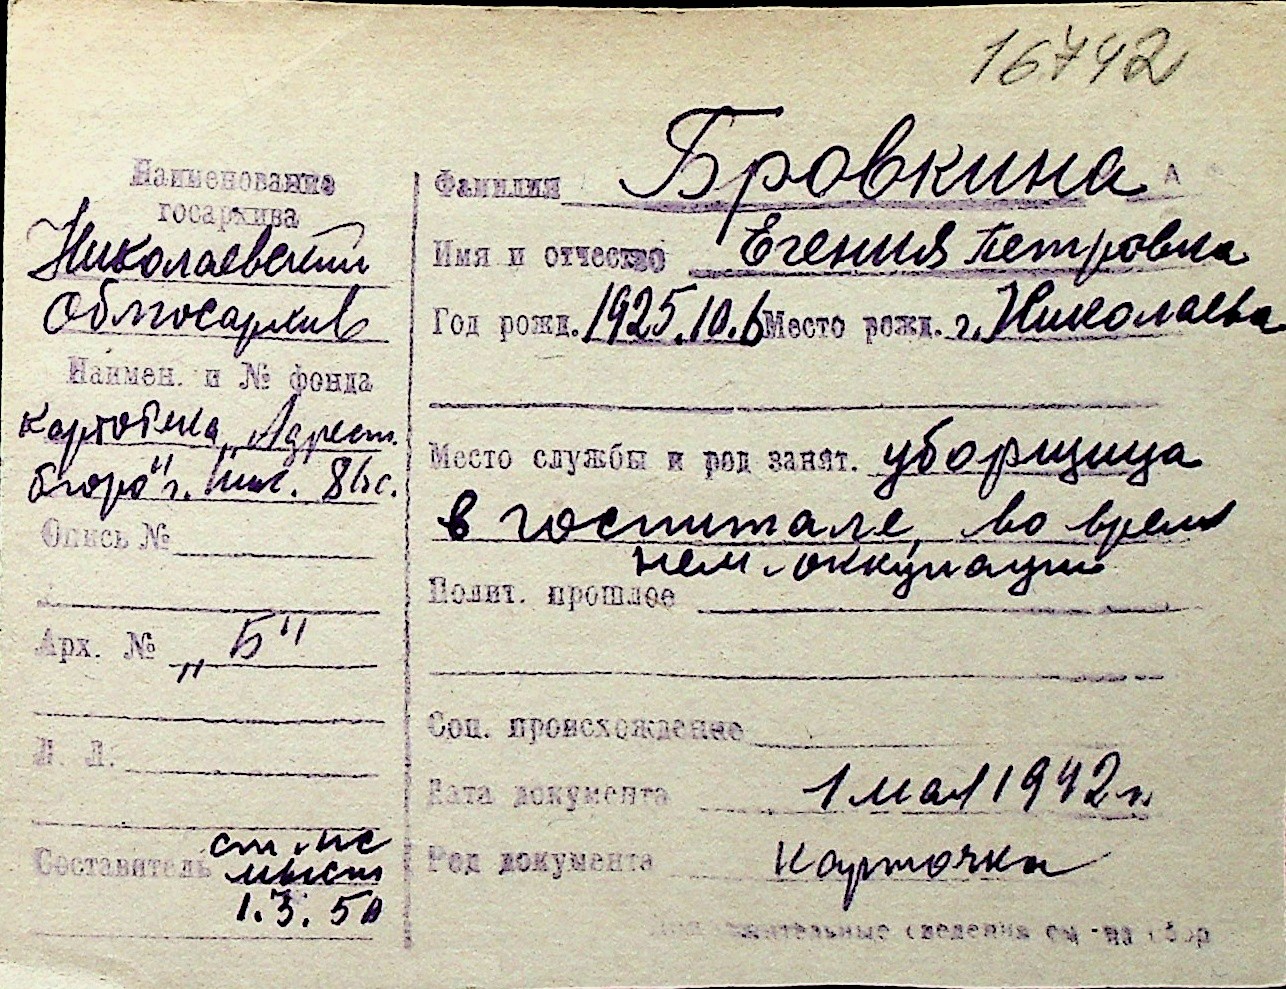 16742
Наименование
госархива
Николаевский
Облгосархив
Наимен. и № фонда
картотека „Адресн.
бюро" г. Ник.
Опись №
Арх. № „Б"
Л. Л.
Составитель
1.3.50
Фамилия Бровкина
Имя и отчество Егения Петровна
Год рожд. 1925.10.6 Место рожд. г. Николаева
Место службы и род занят. уборщица
в госпитале, во время
нем. оккупации
Полит. прошлое
Соц. происхождение
Дата документа 1 мая 1942 г.
Род документа карточка
сведения см на обор